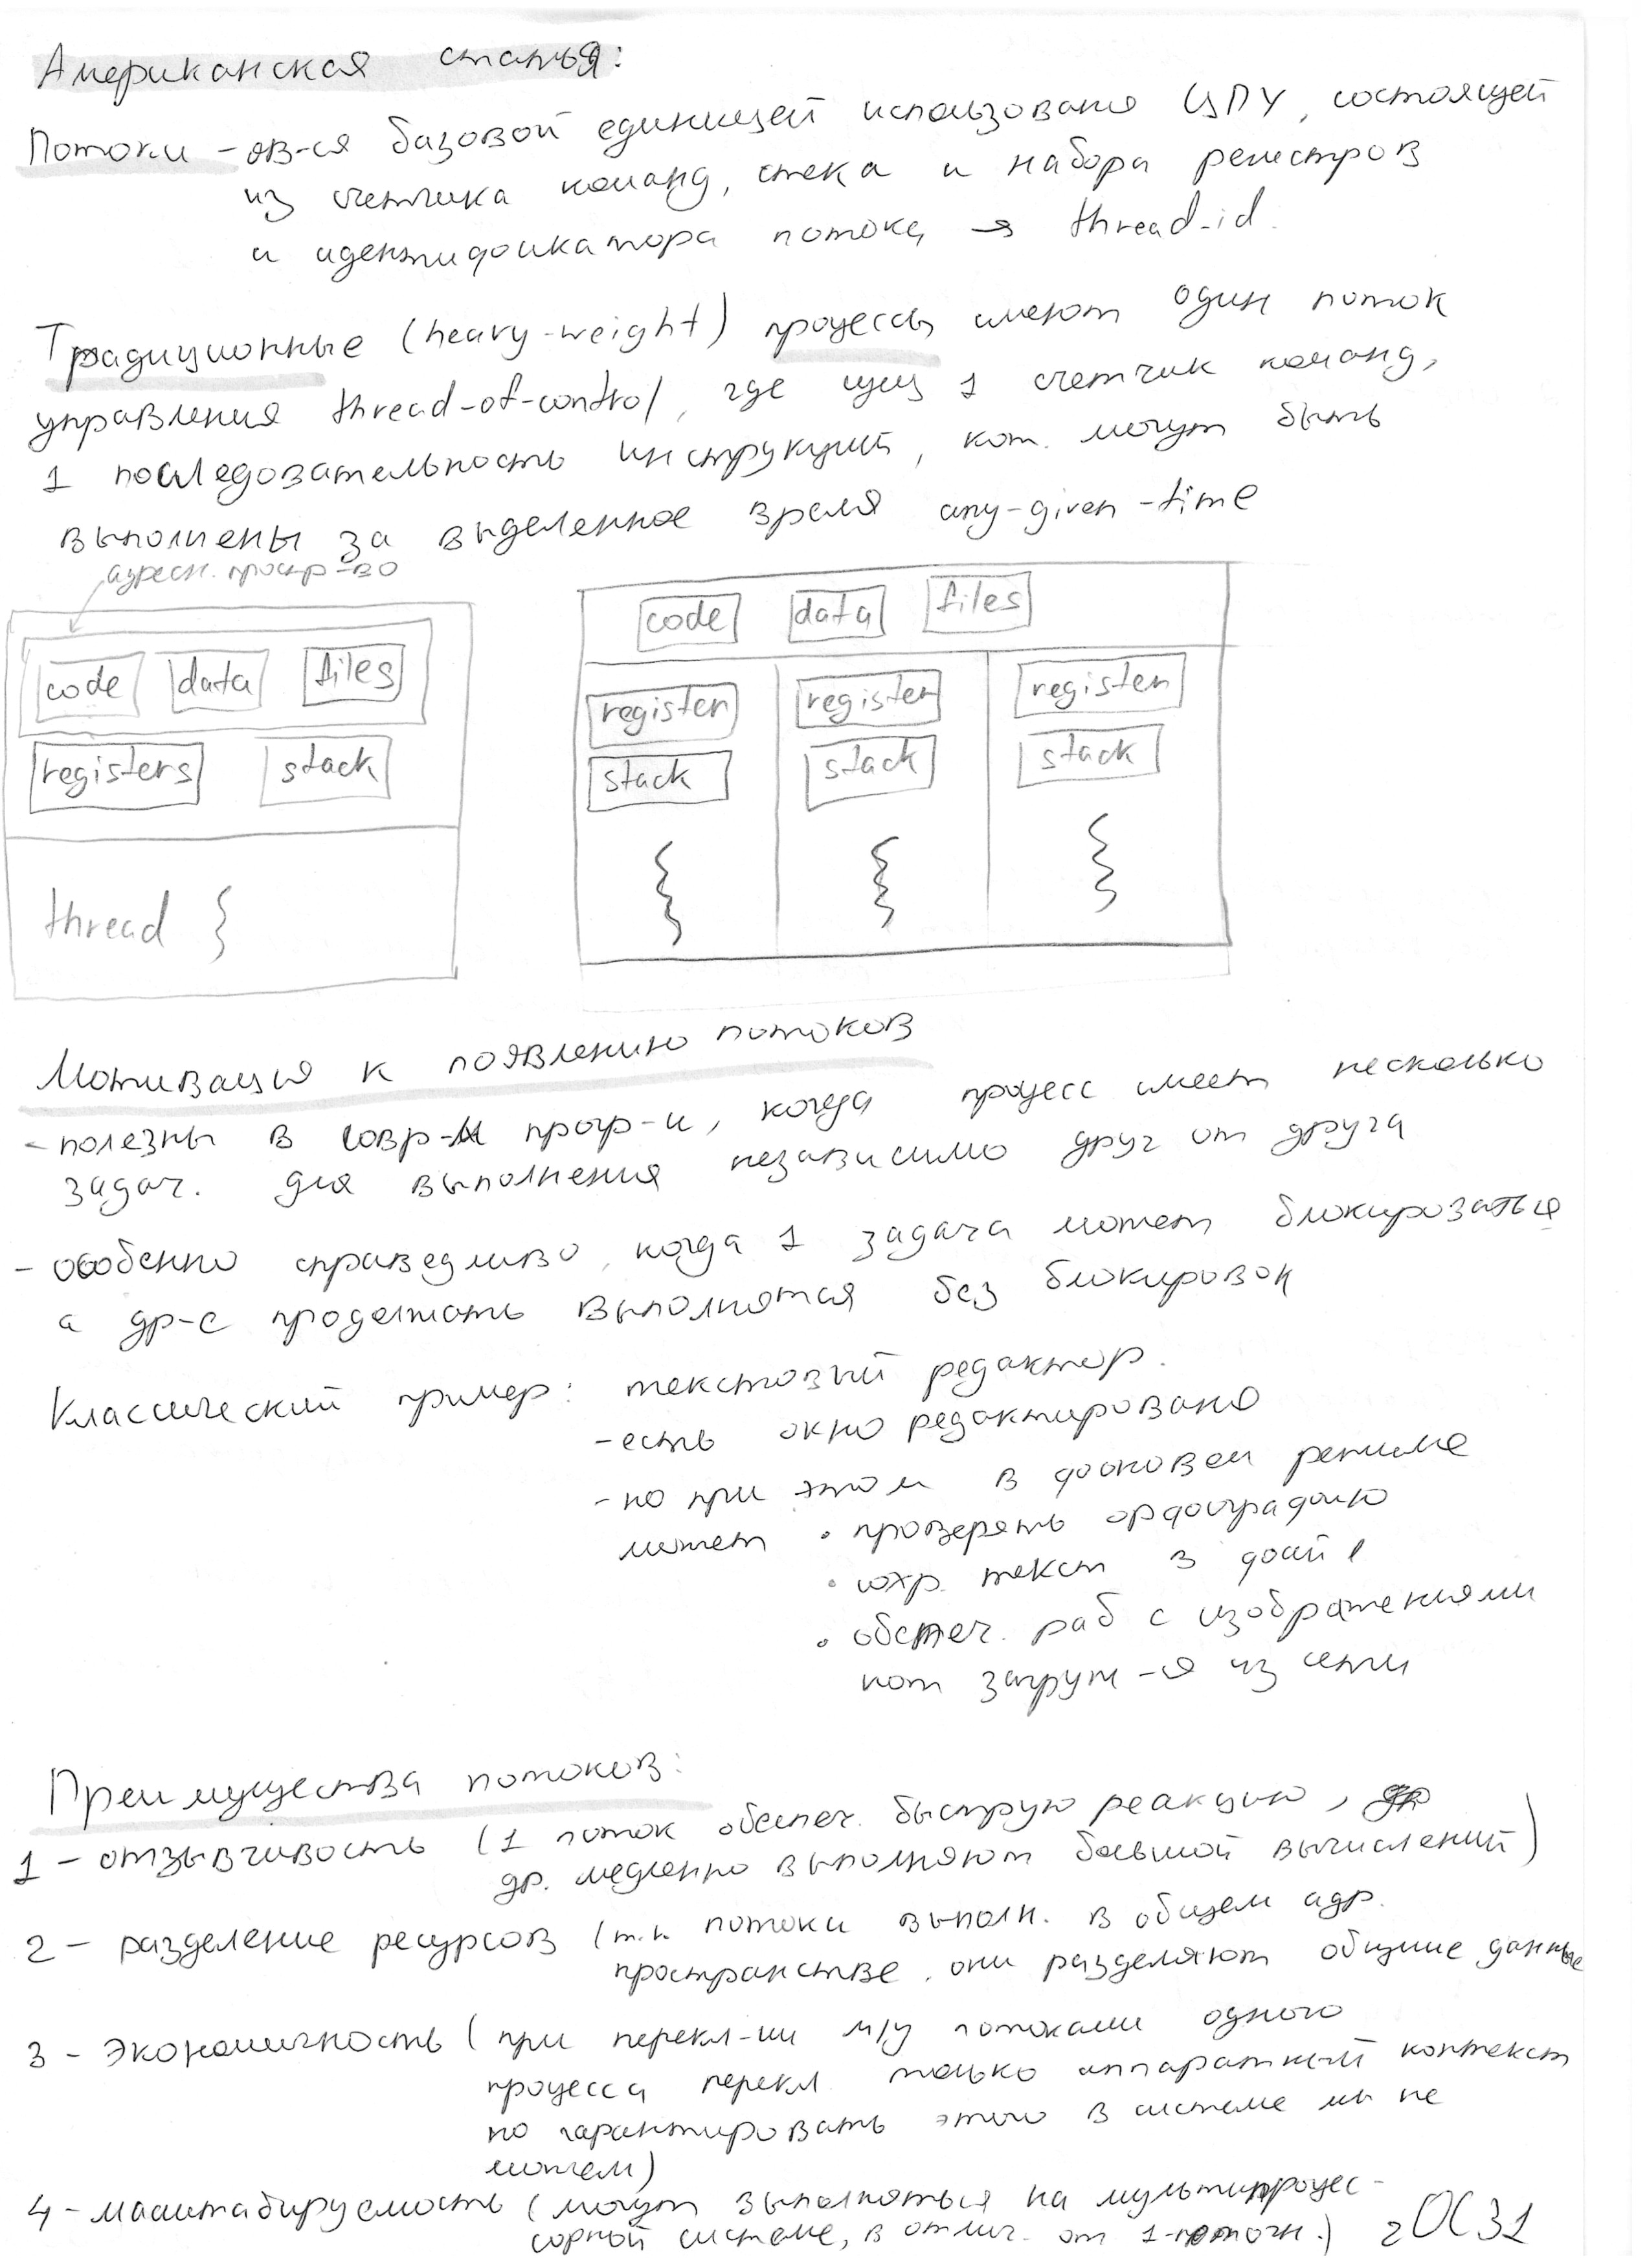 Американская статья:
Потоки – яв-ся базовой единицей использования ЦПУ, состоящей
из счетчика команд, стека и набора регистров
и идентификатора потока → thread-id.
Традиционные (heavy-weight) процессы имеют один поток
управления thread-of-control, где 1 счетчик команд,
1 последовательность инструкций, кот. могут быть
выполнены за выделенное время any-given-time
адресн. простр-во
code data files
registers stack
thread
code data files
register register register
stack stack stack
Мотивация к появлению потоков
- полезны в совр-м прогр-и, когда процесс имеет несколько
задач. для выполнения независимо друг от друга
- особенно справедливо, когда 1 задача может блокироваться
а др-е продолжать выполнятся без блокировок
Классический пример: текстовый редактор.
- есть окно редактирования
- но при этом в фоновом режиме
может • проверять орфографию
• сохр. текст в файл
• обспеч. раб с изображениями
кот загруж-я из сети
Преимущества потоков:
1 – отзывчивость (1 поток обспеч. быструю реакцию,
др. медленно выполняют большой вычислений)
2 – разделение ресурсов (т.к. потоки выполн. в общем адр.
пространстве, они разделяют общие данные
3 – экономичность (при перекл-ии м/у потоками одного
процесса перекл. только аппаратный контекст
но гарантировать этого в системе мы не
можем)
4 – масштабируемость (могут выполняться на мультипроцес-
сорной системе, в отлич. от 1-поточн.)
2OC31